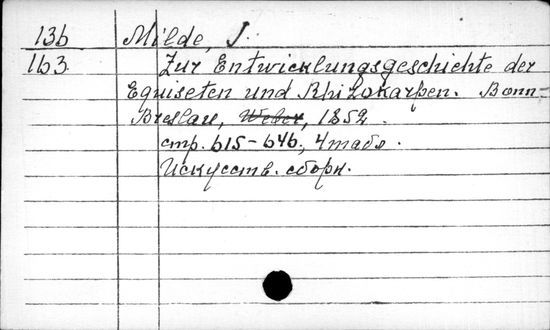 136 Milde, J.
163 Zur Entwicklungsgeschichte der
Equiseten und Rhizokarpen. Bonn-
Breslau, Weber, 1852.
стр. 615-646, 4 табл.
Искусств. сборн.